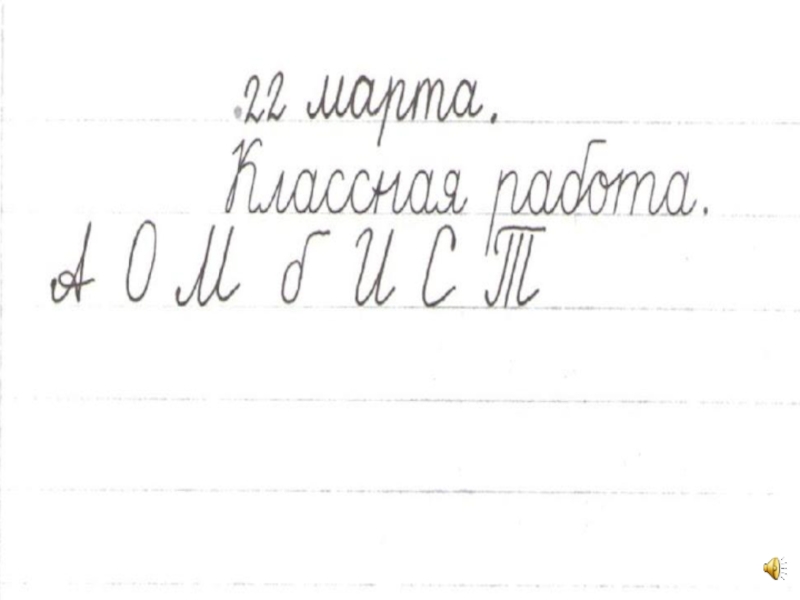 22 марта.
Классная работа.
А О М б И С Т